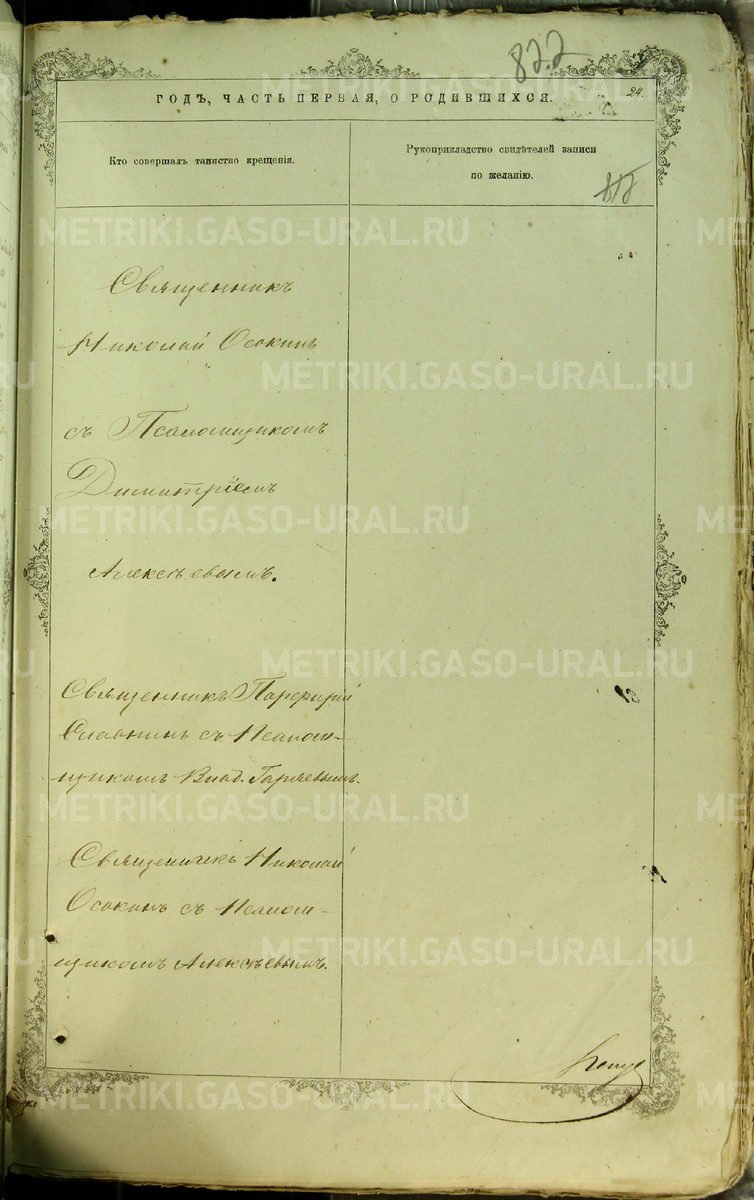 822
ГОДЪ, ЧАСТЬ ПЕРВАЯ, О РОДИВШИХСЯ.
24.
Кто совершалъ таинство крещенія.
Рукоприкладство свидѣтелей записи
по желанію.
Священникъ
Николай Осокинъ
съ Псаломщикомъ
Димитріемъ
Алексѣевымъ.
Священникъ Порфирій
Славнинъ съ Псалом-
щикомъ Влад. Гаряевымъ.
Священникъ Николай
Осокинъ съ Псалом-
щикомъ Алексѣевымъ.
METRIKI.GASO-URAL.RU